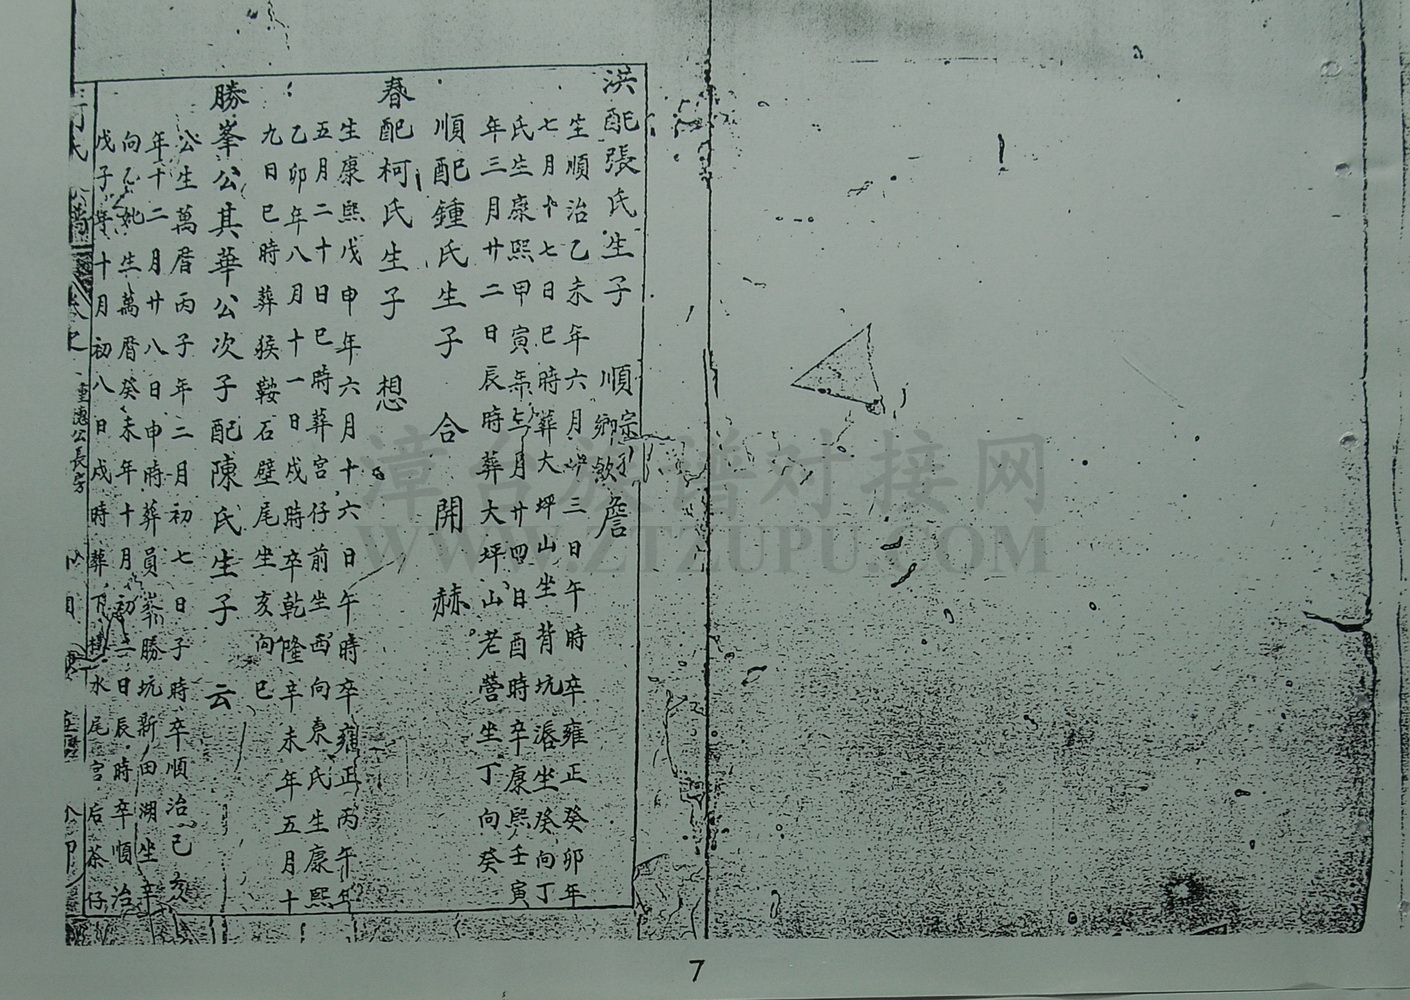 洪配張氏生子 順 宗 鄉 詹
生順治乙未年六月 三日午時卒雍正癸卯年
七月十七日巳時葬大坪山坐背坑 坐癸向丁
氏生康熙甲寅年 月廿四日酉時卒康熙壬寅
年三月廿二日辰時葬大坪山老營坐丁向癸
順配鍾氏生子 合 開 赫
春配柯氏生子 想
生康熙戊申年六月十六日午時卒雍正丙午年
五月二十日巳時葬宮仔前坐酉向 氏生康熙
乙卯年八月十一日戌時卒乾隆辛未年五月十
九日巳時葬猴鞍石壁尾坐亥向巳
勝峯公其華公次子配陳氏生子 云
公生萬曆丙子年二月初七日子時卒順治己亥
年十二月廿八日申時葬員峯勝坑新田湖坐辛
向乙妣生萬曆癸未年十月初二日辰時卒順治
戊子年十月初八日戌時葬下 水尾宮后茶仔
長房
漳台族谱对接网
WWW.ZTZUPU.COM
7